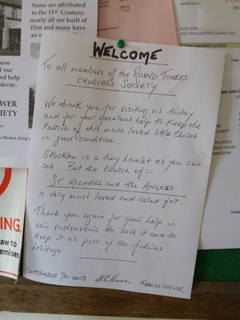 Some are attributed
to the 11th Century,
nearly all are built of
flint and many have
WELCOME
To all members of the ROUND TOWERS
CHURCHES SOCIETY
We thank you for visiting us today
and for your generous help to keep the
fabric of this much loved little Church
in good condition.
Stockton is a tiny hamlet as you can
see. But the Church of:-
ST. MICHAEL AND ALL ANGELS
is very much loved and cared for.
Thank you again for your help in
our endeavours to save it and to
keep it as part of the
heritage.
SEPTEMBER 7th 2013
WER
IETY
ING.
aw to
emises